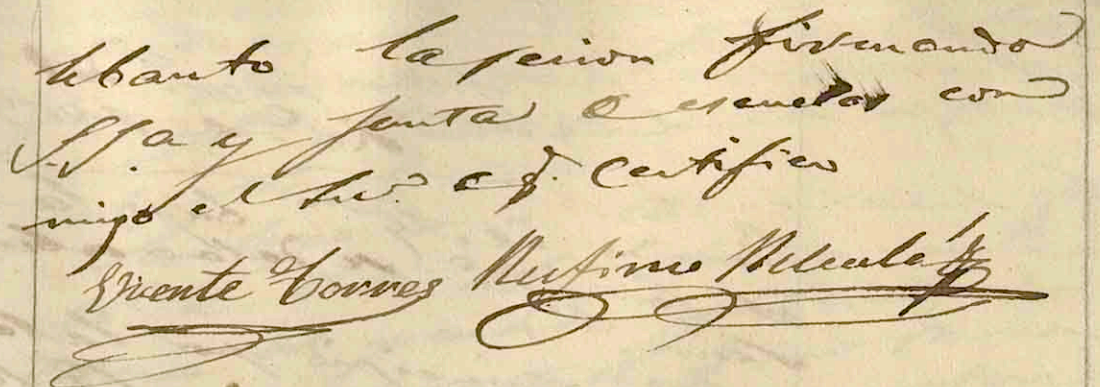 lebanto la secion firmando
S.S.a y Junta de escuelas con
migo el Srio. de q. Certifico
Vicente Torres Rufino